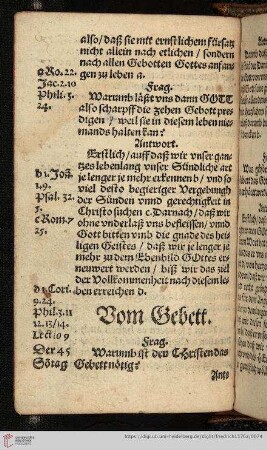 also/ daß sie mit ernstlichem fürsatz
nicht allein nach etlichen/ sondern
nach allen Gebotten Gottes anfan
gen zu leben a.
a Ro. 22.
Jac. 2. 10
Phili. 3.
24.
Frag.
Warumb läßt vns dann GOTT
also scharpff die zehen Gebott pre
digen/ weil sie in diesem leben nie
mands halten kan?
Antwort.
Erstlich/ auff daß wir vnser gan
tzes lebenlang vnser Sündliche art
je lenger je mehr erkennen b/ vnd so
viel desto begieriger Vergebung
der Sünden vnnd gerechtigkeit in
Christo suchen c. Darnach/ daß wir
ohne vnderlaß vns befleissen/ vnnd
Gott bitten vmb die gnade des hei
ligen Geistes/ daß wir je lenger je
mehr zu dem Ebenbild GOttes er
neuwert werden/ biß wir das ziel
der Vollkommenheit nach diesem le
ben erreichen d.
b 1. Joh.
1. 9.
Psal. 32
5.
c Rom. 7
25.
d 1. Cori.
9. 24.
Phil. 3. 11
12. 13/ 14.
Der 45
Sötag
Vom Gebett.
Frag.
Warumb ist den Christen das
Gebett nötig?
Ant